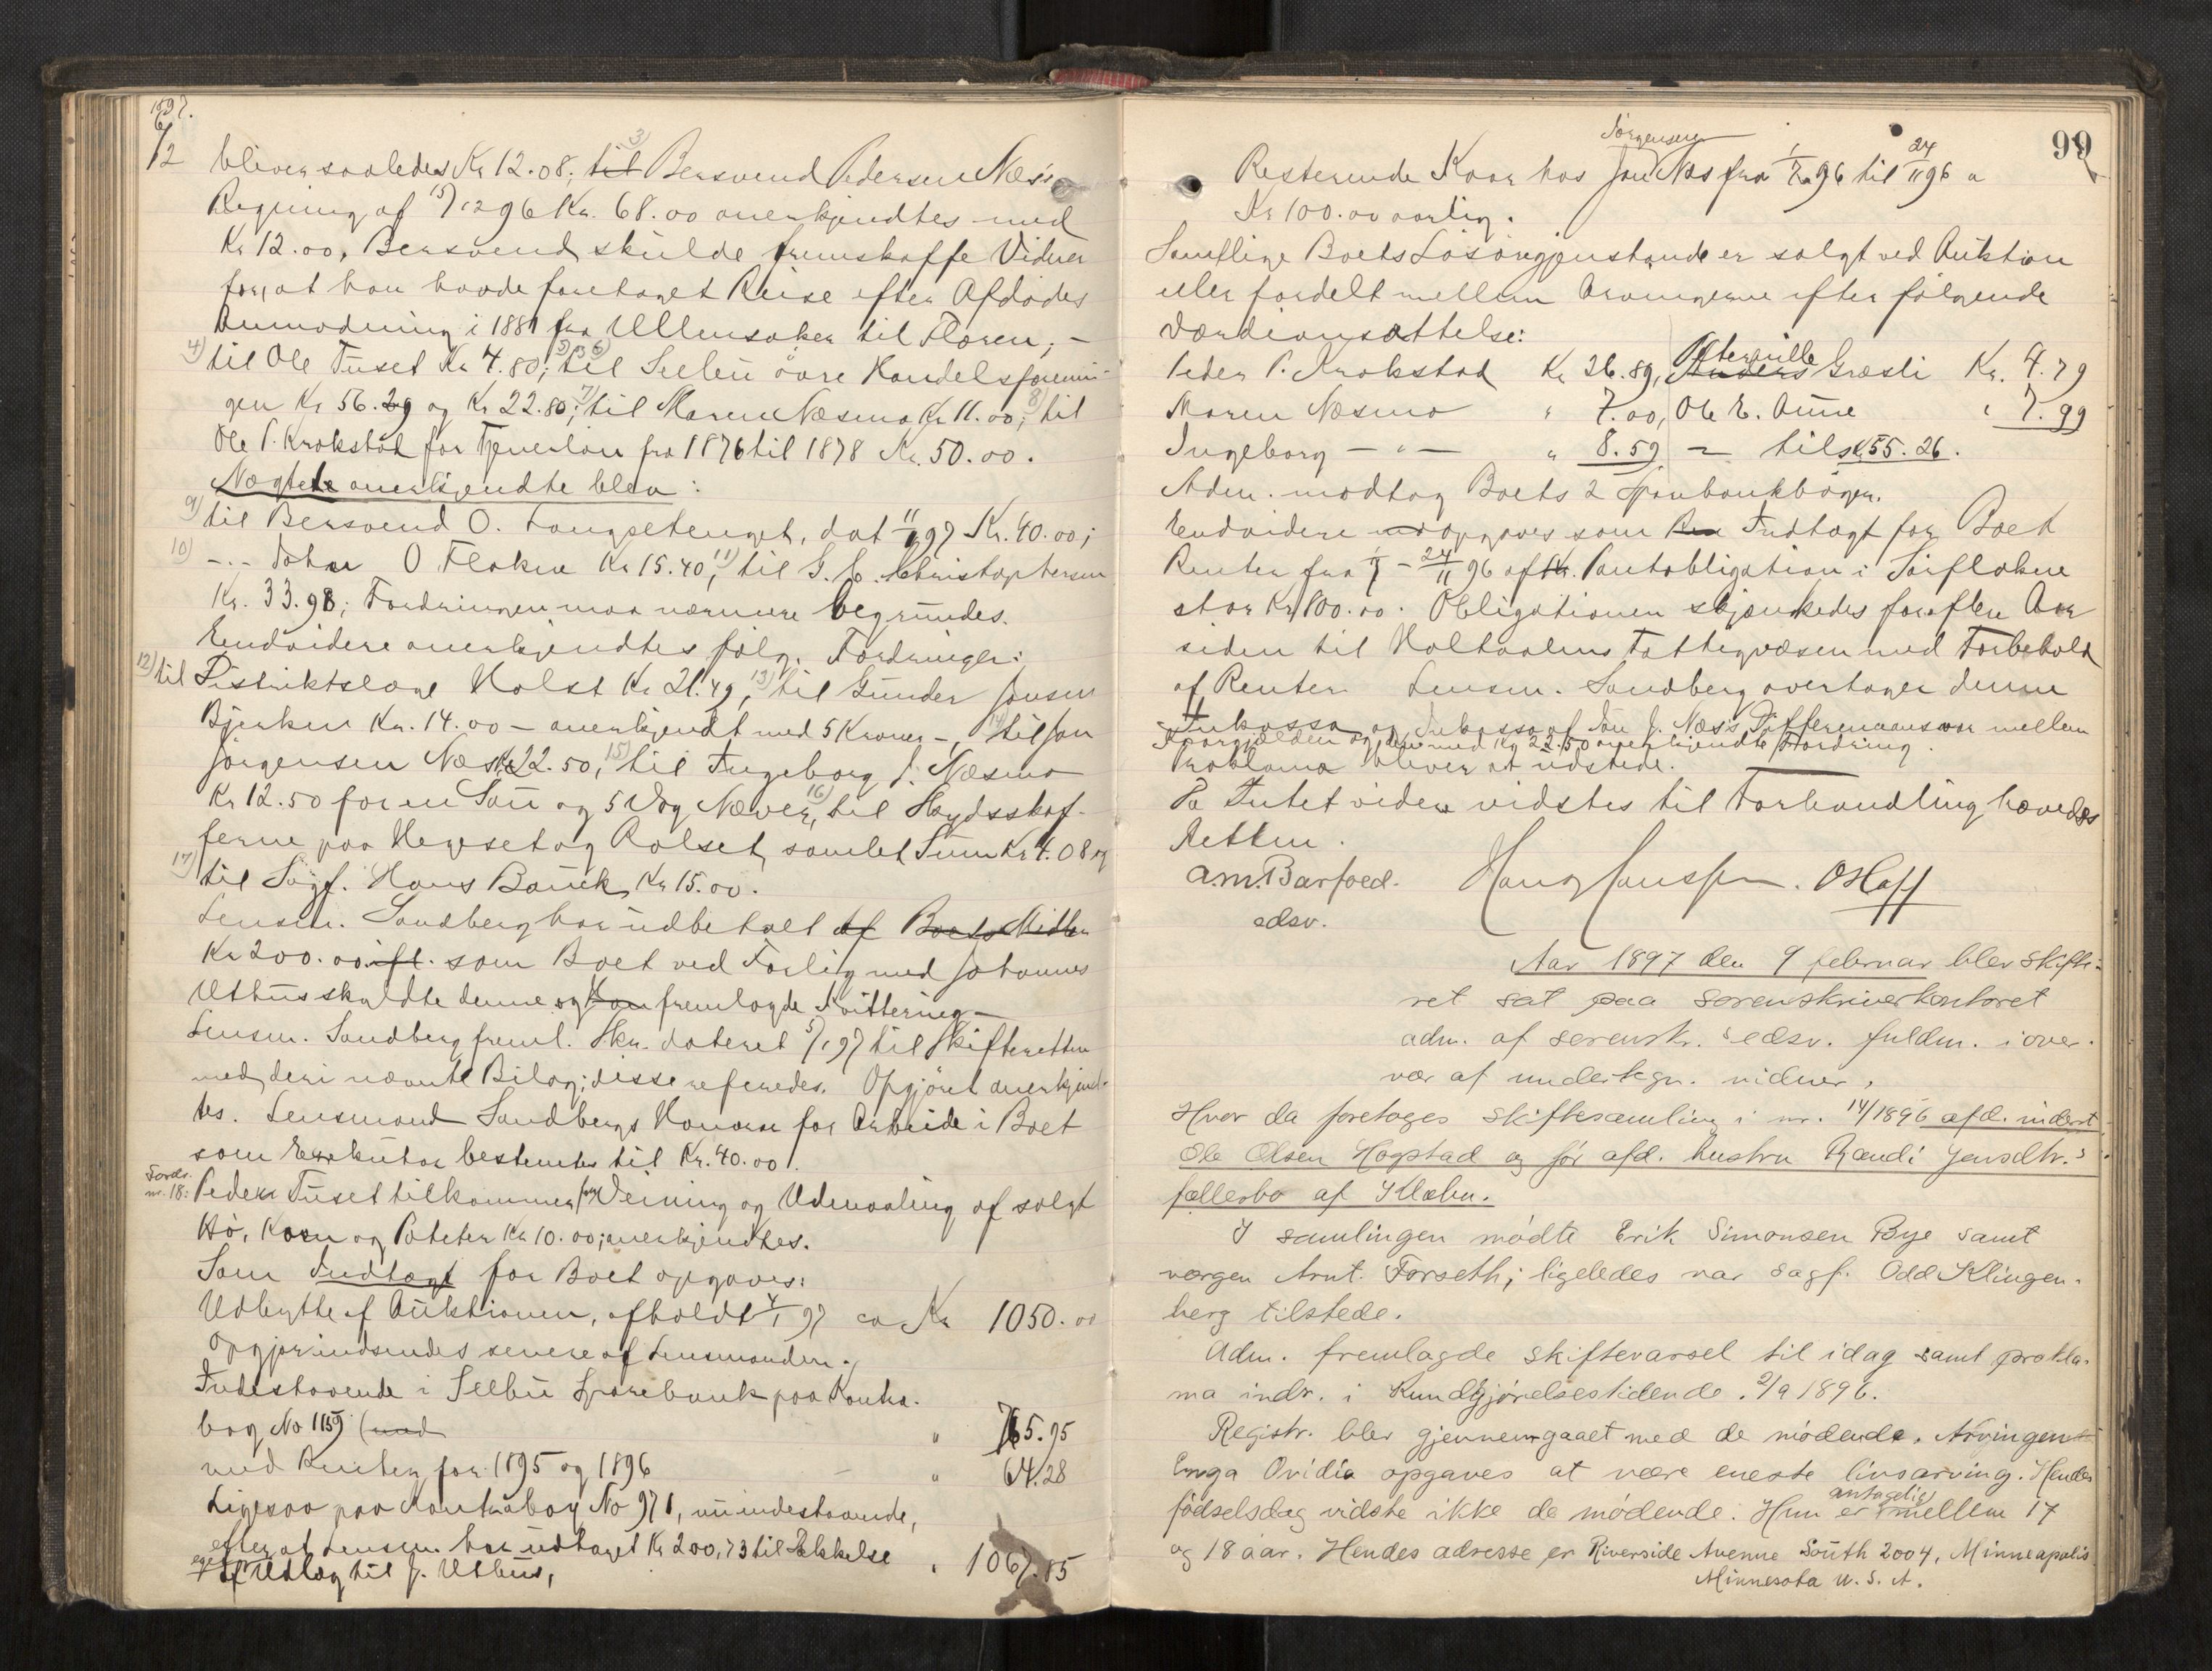 1897.
6/2 bliver saaledes Kr 12.08; 3) til Bersvend Pedersen Næs's
Regning af 15/12 96 Kr. 68.00 anerkjendtes med
Kr 12.00, Bersvend skulde fremskaffe Vidner
for, at han havde foretaget Reise efter Afdødes
Anmodning i 1881 fra Ullensaker til Floren; –
4) til Ole Tuset Kr 4.80; 5) & 6) til Selbu övre Handelsforenin-
gen Kr 56.29 og Kr 22.80; 7) til Maren Næsmo Kr 11.00; 8) til
Ole P. Krokstad for Tjenerløn fra 1876 til 1878 Kr. 50.00.
Nægtede anerkjendte blev:
9) til Bersvend O. Langseth, dat 11/1 97 Kr. 40.00;
10) -.- Johan O Floken Kr 15.40, 11) til G. C. Christophersen
Kr. 33.98; Fordringen maa nærmere begrundes.
Endvidere anerkjendtes følg. Fordringer:
12) til Distriktslæge Holst Kr 21.49, 13) til Gunder Jonsen
Bjerken Kr. 14.00 – anerkjendt med 5 Kroner –, 14) til Jon
Jørgensen Næs Kr 22.50, 15) til Ingeborg J. Næsmo
Kr 12.50 for en Sau og 5 Vog Næver, 16) til Haydsskaf-
ferne paa Hegset og Rolset, samlet Sum Kr 4.08 og
17) til Sagf. Hans Bauck, Kr 15.00.
Lensm. Sandberg har udbetalt af Boets Midler
Kr 200.00 ifl. som Boet ved Forlig med Johannes
Uthus skyldte denne og han fremlagde Kvittering –
Lensm. Sandberg freml. Skr. dateret 5/1 97 til Skifteretten
med deri nævnte Bilag; disse refereredes. Opgjöret anerkjend-
tes. Lensmand Sandbergs Honorar for Arbeide i Boet
som Exekutor bestemtes til Kr. 40.00.
Fordr. nr. 18: Peder Tuset tilkommer for Veining og Udmaaling af solgt
Hö, Korn og Poteter Kr 10.00; anerkjendtes.
Som Indtægt for Boet opgaves:
Udbytte af Auktionen, afholdt 4/1 97 ca Kr 1050.00
Opgjør indsendes senere af Lensmanden.
Indestaaende i Selbu Sparebank paa Kontra-
bog No 1159 (med " 765.95
med Renter for 1895 og 1896 – " 64.28
Ligesaa paa Kontrabog No 971, nu indestaaende,
efter at Lensm. har udtaget Kr 200,73 til Dækkelse
af eget Udlæg til J. Uthus, " 1067.85
99
Resterende Kaar hos Jon Jørgensen Næs fra 1/7 96 til 24/11 96 a
Kr 100.00 aarlig.
Samtlige Boets Løsøregjenstande er solgt ved Auktion
eller fordelt mellem Arvingerne efter følgende
Værdiansættelse:
Peder P. Krokstad Kr 26.89, Anders Græsli Kr. 4.79
Maren Næsmo " 7.00, Ole E. Aune " 7.99
Ingeborg – " – " 8.59 – tils Kr 55.26.
Adm. modtog Boets 2 Sparebankbøger.
Endvidere opgaves som Indtægt for Boet
Renter fra – 24/11 96 af Pantobligation i Sörflokne
stor Kr 800.00. Obligationen skjænkedes for flere Aar
siden til Holtaalens Fattigvæsen med Forbehold
af Renter. Lensm. Sandberg overtager denne
Inkasso og Inkasso af Jon J. Næs's Differenceansvar mellem
Kaargjælden og den med Kr 22.50 anerkjendte Fordring.
Proklama bliver at udstede.
Da Intet videre vidstes til Forhandling hævedes
Retten.
A.M. Barfoed. Hans Hanssen. O Hoff
edsv.
Aar 1897 den 9 februar blev skifte-
ret sat paa sorenskriverkontoret
adm. af sorenskr.s edsv. fuldm. i over-
vær af undertegn. vidner.
Hvor da foretoges skiftesamling i nr. 14/1896 afd. inderst
Ole Olsen Hogstad og før afd. hustru Randi Jensdtr.s
fællesbo af Klæbu.
I samlingen mødte Erik Simonsen Bye samt
værgen Arnt. Forseth; ligeledes var sagf. Odd Klingen-
berg tilstede.
Adm. fremlagde skiftevarsel til idag samt prokla-
ma indr. i Kundgjørelsestidende 2/9 1896.
Registr. blev gjennemgaaet med de mødende. Arvingen
Inga Ovidia opgaves at være eneste livsarving. Hendes
fødselsdag vidste ikke de mødende. Hun er antagelig mellem 17
og 18 aar. Hendes adresse er Riverside Avenue South 2004, Minneapolis
Minnesota U.S.A.